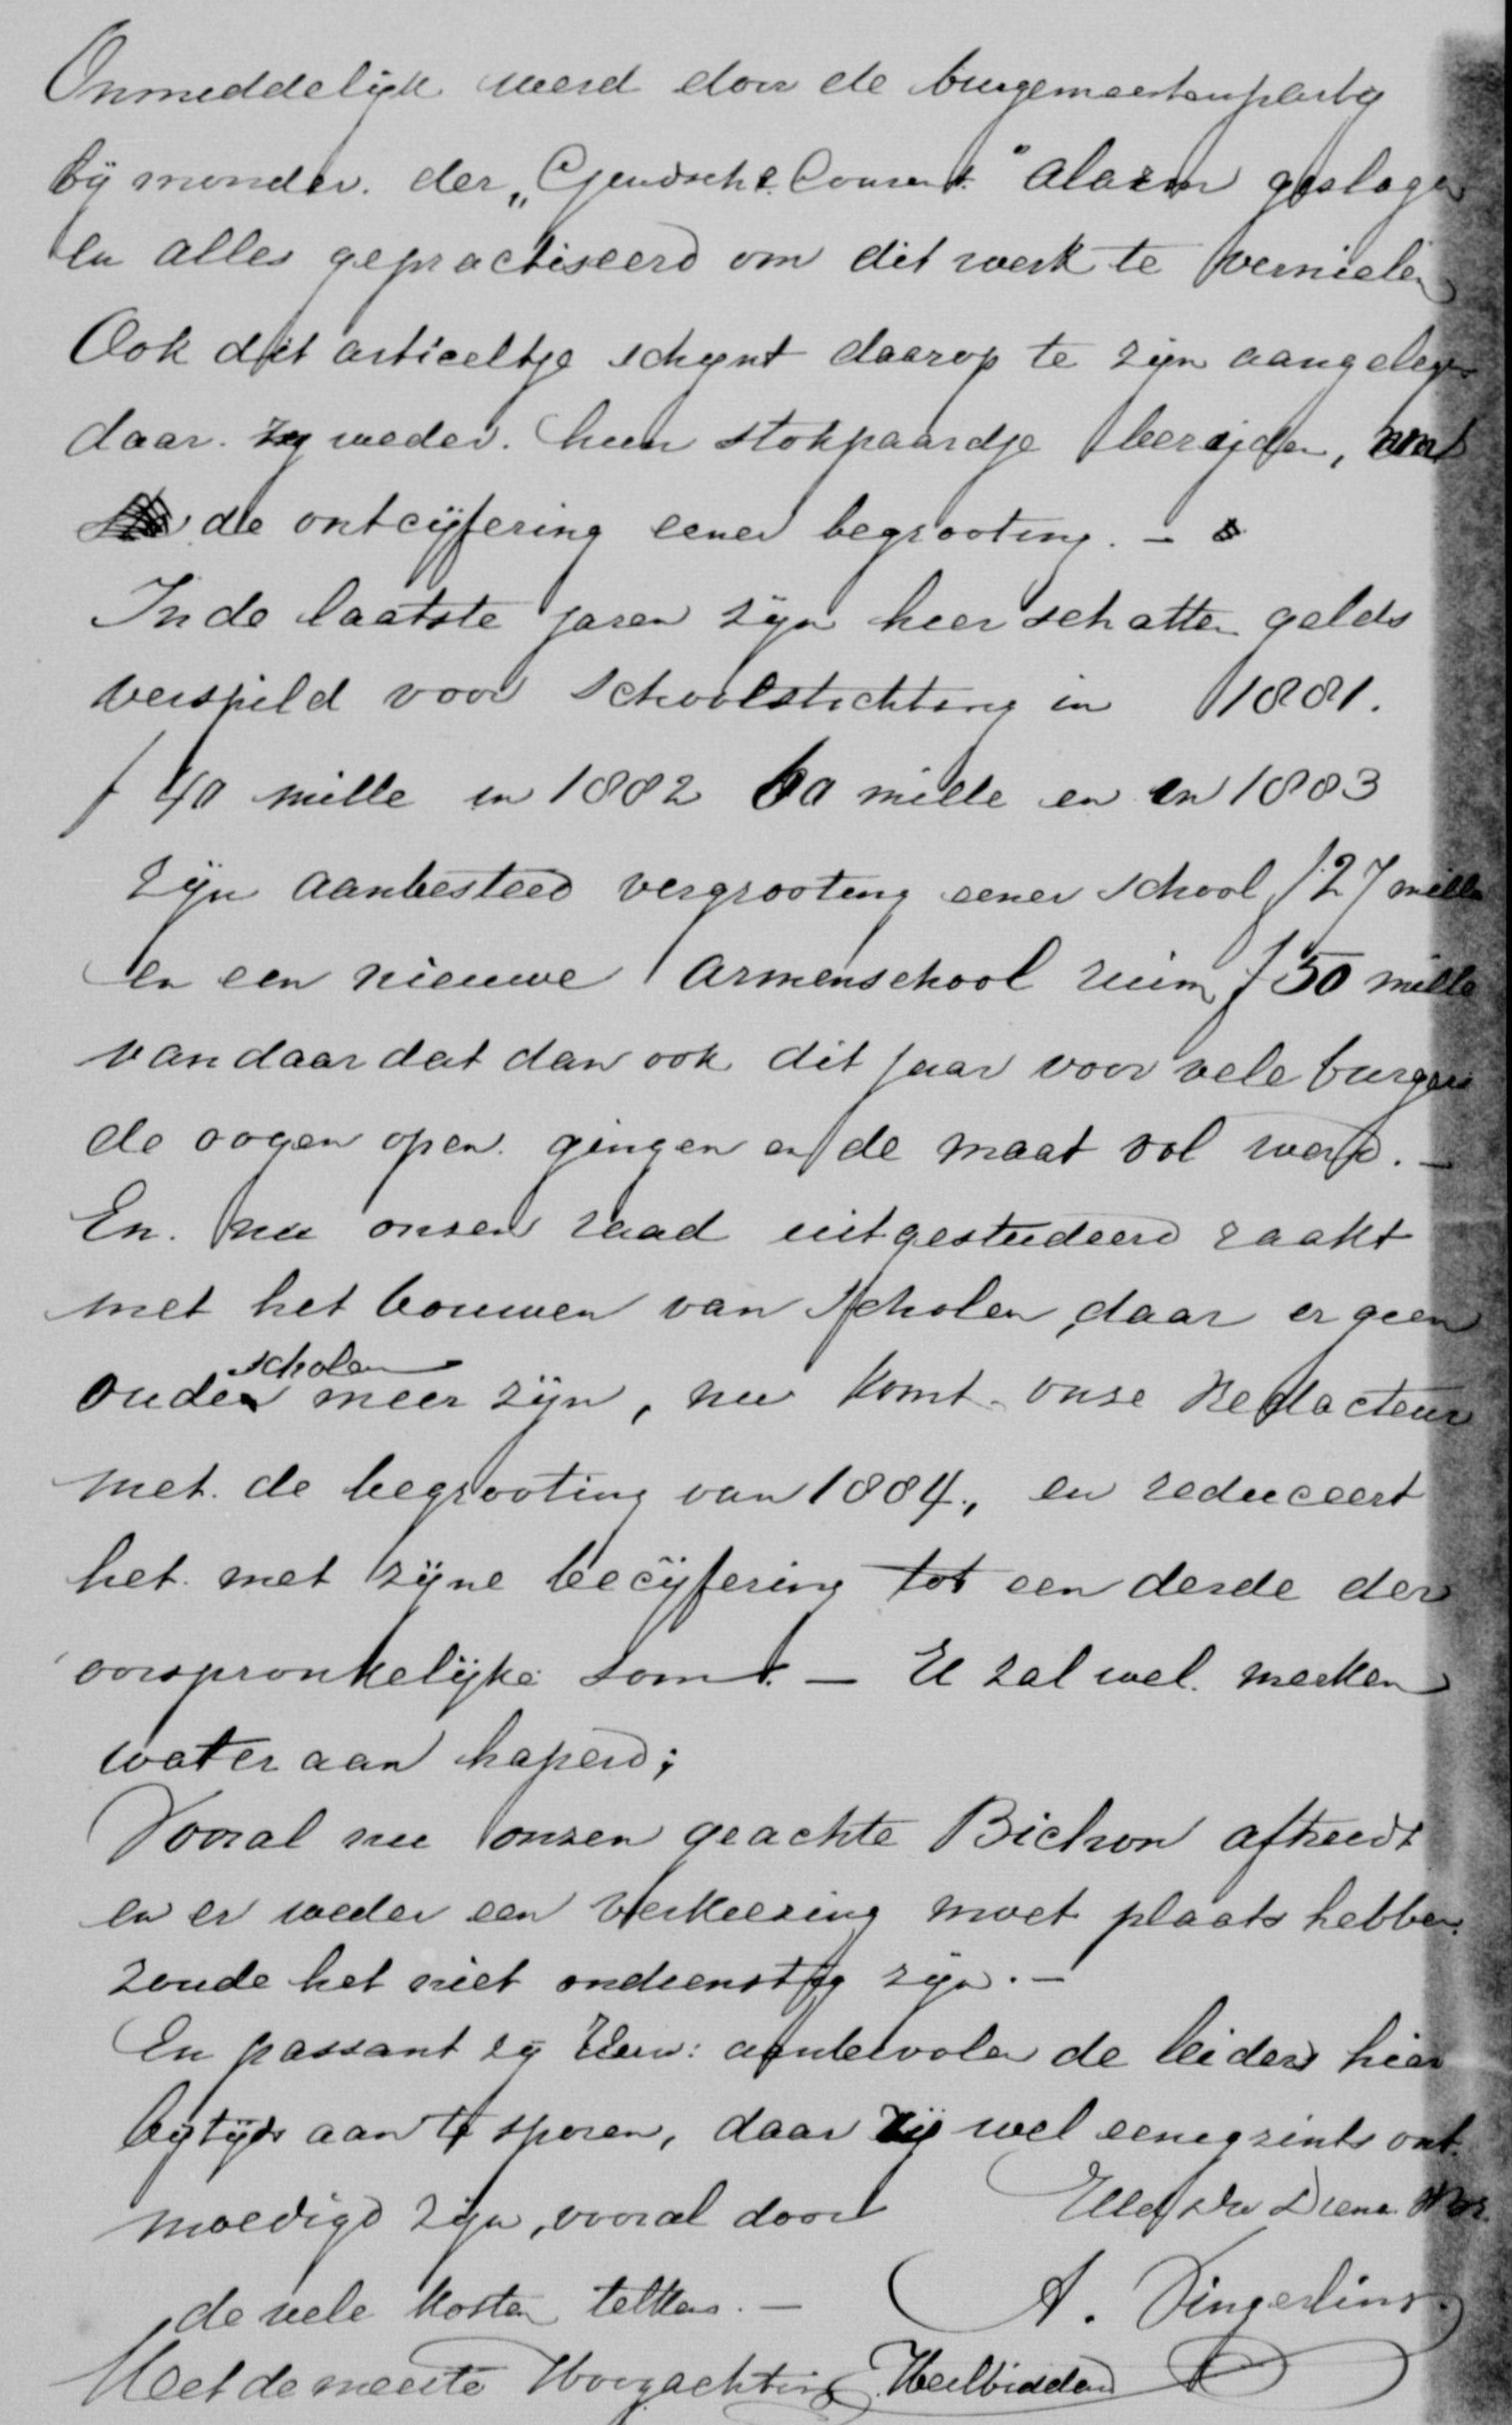 Onmiddelijk werd door de burgemeesterspartij
bij monde der „Goudsche Courant" alarm geslagen
en alles gepractiseerd om dit werk te vernielen
Ook dit articeltje schijnt daarop te zijn aangelegd
daar zij weder hun stokpaardje berijden, met
de ontcijfering eener begrooting. –
In de laatste jaren zijn hier schatten gelds
verspild voor schoolstichting in 1881.
f 40 mille in 1882 60 mille en in 1883
zijn aanbesteed vergrooting eener school f 27 mille
en een nieuwe armenschool ruim f 50 mille
van daar dat dan ook dit jaar voor vele burgers
de oogen open gingen en de maat vol werd. –
En nu onsen raad uitgestudeerd raakt
met het bouwen van scholen, daar er geen
ouden scholen meer zijn, nu komt onze Redacteur
met de begrooting van 1884, en reduceert
het met zijne becijfering tot een derde der
oorspronkelijke som. – U zal wel merken
wat er aan haperd;
Vooral nu onzen geachte Bichon aftreedt
en er weder een verkeezing moet plaats hebben
zoude het niet ondienstig zijn. –
En passant zij aanbevolen de leiders hier
bijtijds aan te sporen, daar zij wel eenigzints ont-
moedigd zijn, vooral door
de vele kosten telkens. –
Met de meeste Hoogachting Heilbiddend
A. Dingerling